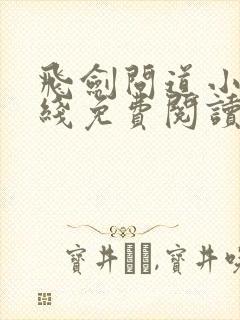 飛劍問道小
綫免費閱讀
寶井,寶井咲